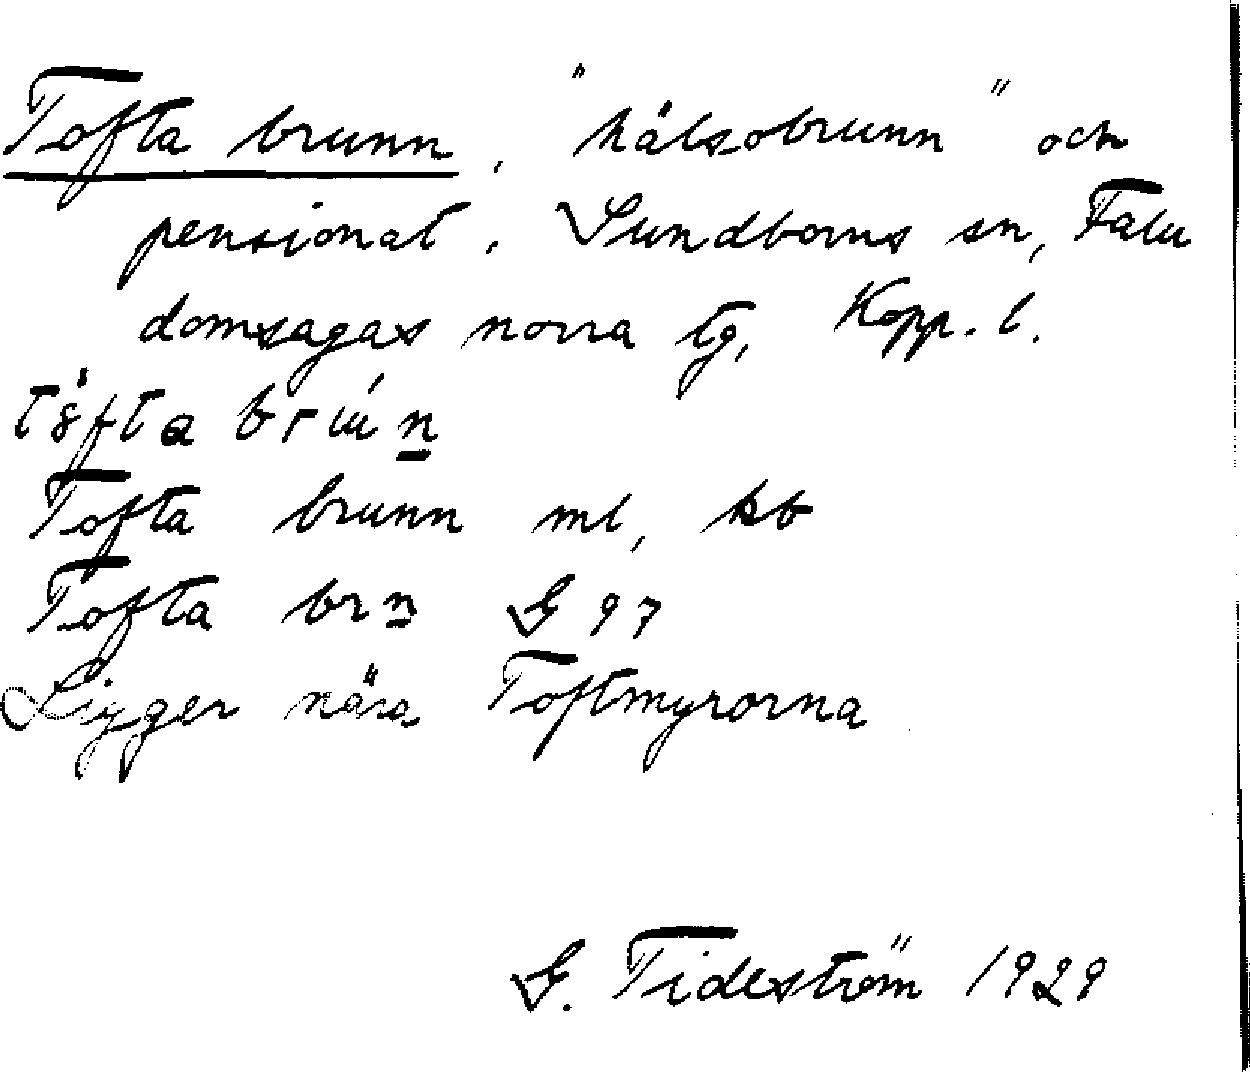 Tofta brunn, "hälsobrunn" och
pensionat, Sundborns sn, Falu
domsagas norra tg, Kopp. l.
Tofta brunn ml, kb
Tofta brn G 97
Ligger nära Toftmyrorna
G. Tideström 1929